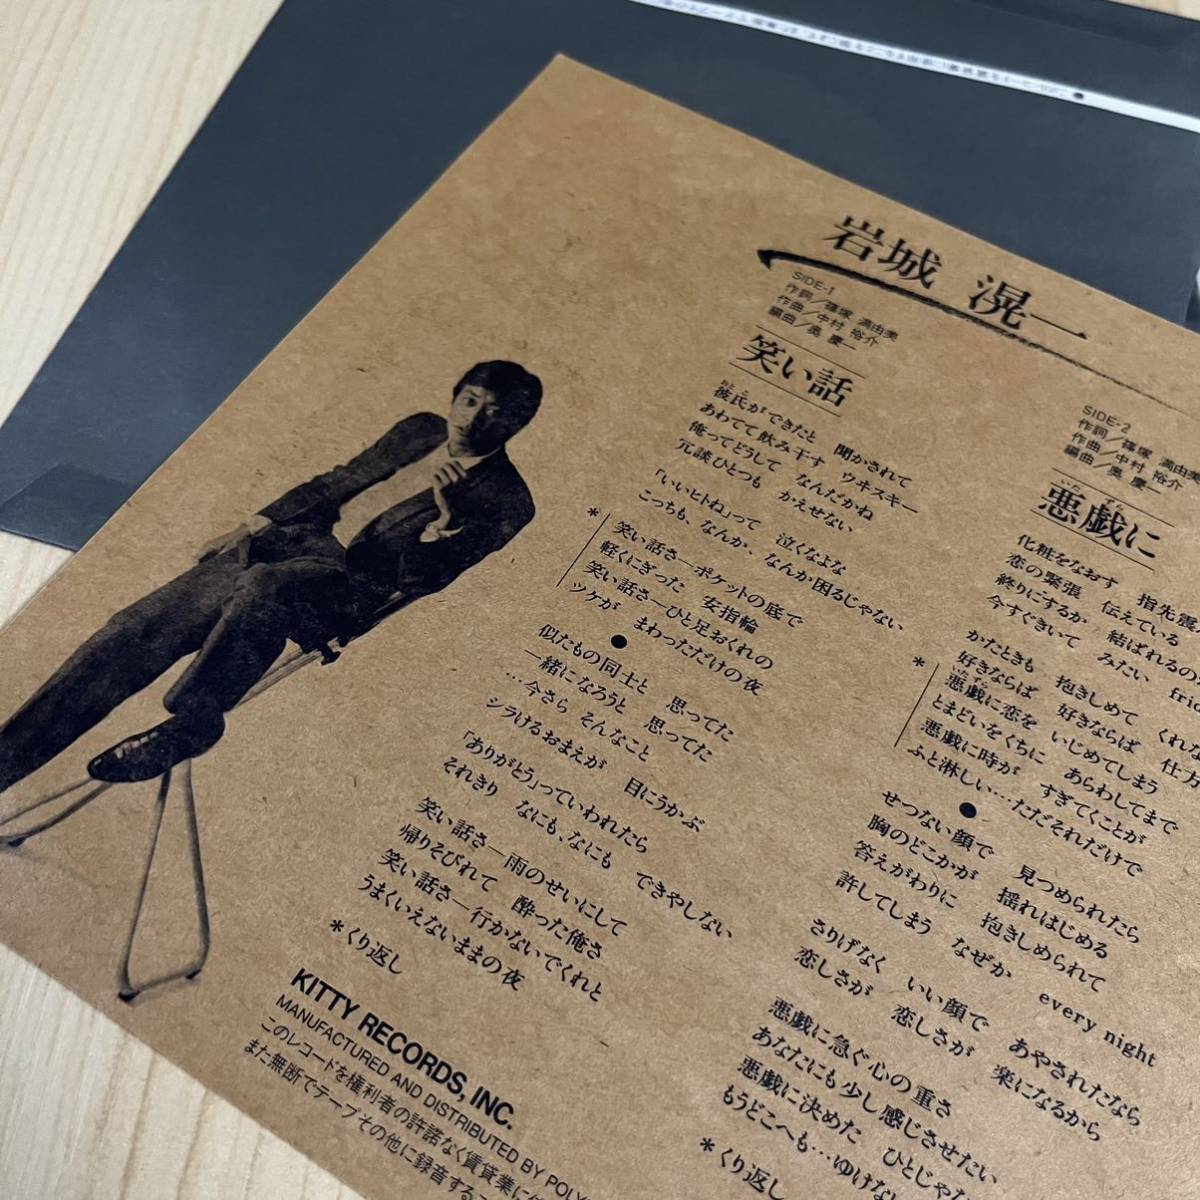 岩城 滉一
SIDE-1
作詞/篠塚 満由美
作曲/中村 裕介
編曲/奥 慶一
笑い話
おとこ
彼氏ができたと 聞かされて
あわてて飲み干す ウヰスキー
俺ってどうして なんだかね
冗談ひとつも かえせない
「いいヒトね」って 泣くなよな
こっちも、なんか、なんか困るじゃない
* 笑い話さ―ポケットの底で
軽くにぎった 安指輪
笑い話さ―ひと足おくれの
ツケが まわっただけの夜
●
似たもの同士と 思ってた
一緒になろうと 思ってた
…今さら そんなこと
シラけるおまえが 目にうかぶ
「ありがとう」っていわれたら
それきり なにも、なにも できやしない
笑い話さ―雨のせいにして
帰りそびれて 酔った俺さ
笑い話さ―行かないでくれと
うまくいえないままの夜
*くり返し
SIDE-2
作詞/篠塚 満由美
作曲/中村 裕介
編曲/奥 慶一
悪戯に
化粧をなおす 指先震
恋の緊張 伝えている
終りにするか 結ばれるの
今すぐきいて みたい
かたときも 抱きしめて くれな
好きならば 好きならば 仕方
いたずら
* 悪戯に恋を いじめてしまう
とまどいをくちに あらわしてまで
悪戯に時が すぎてくことが
ふと淋しい…ただそれだけで
●
せつない顔で 見つめられたら
胸のどこかが 揺れはじめる
答えがわりに 抱きしめられて
許してしまう なぜか every night
さりげなく いい顔で あやされたなら
恋しさが 恋しさが 楽になるから
悪戯に急ぐ心の重さ
あなたにも少し感じさせたい
悪戯に決めた ひとじゃな
もうどこへも…ゆけない
*くり返し
KITTY RECORDS, INC.
MANUFACTURED AND DISTRIBUTED BY POLY
このレコードを権利者の許諾なく賃貸業に
また無断でテープその他に録音する